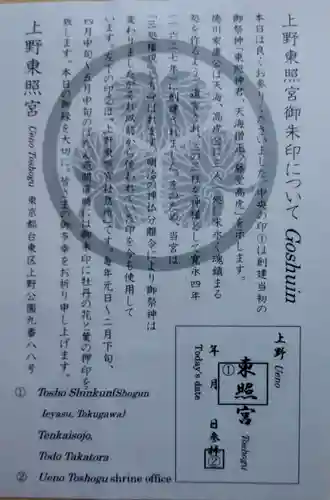 上野東照宮御朱印について Goshuin
本日は良くお参りくださいました。中央の印①は創建当初の
御祭神「東照神君、天海僧正、藤堂高虎」を示します。
徳川家康公は天海、高虎公に三人一処に末永く魂鎮まる
処を作るよう
一六二七年に創建されました。
「三処権現」とも呼ばれます。明治の神仏分離令により御祭神は
変わりましたが
います。左下の印②は「上野東照宮社務所」です。毎年元旦〜二月下旬、
四月中旬〜五月中旬のぼたん苑開苑時には御朱印に牡丹の花と葉の押印を
致します。本日の御縁を大切に、皆さまの御多幸をお祈り申し上げます。
上野東照宮 Ueno Toshogu 東京都台東区上野公園九番八八号
上野 Ueno
①
東照宮 Toshogu
年 月 日参拝
Today's date
②
① Tosho Shinkun(Shogun
Ieyasu, Tokugawa)
Tenkaisojo,
Todo Takatora
② Ueno Toshogu shrine office